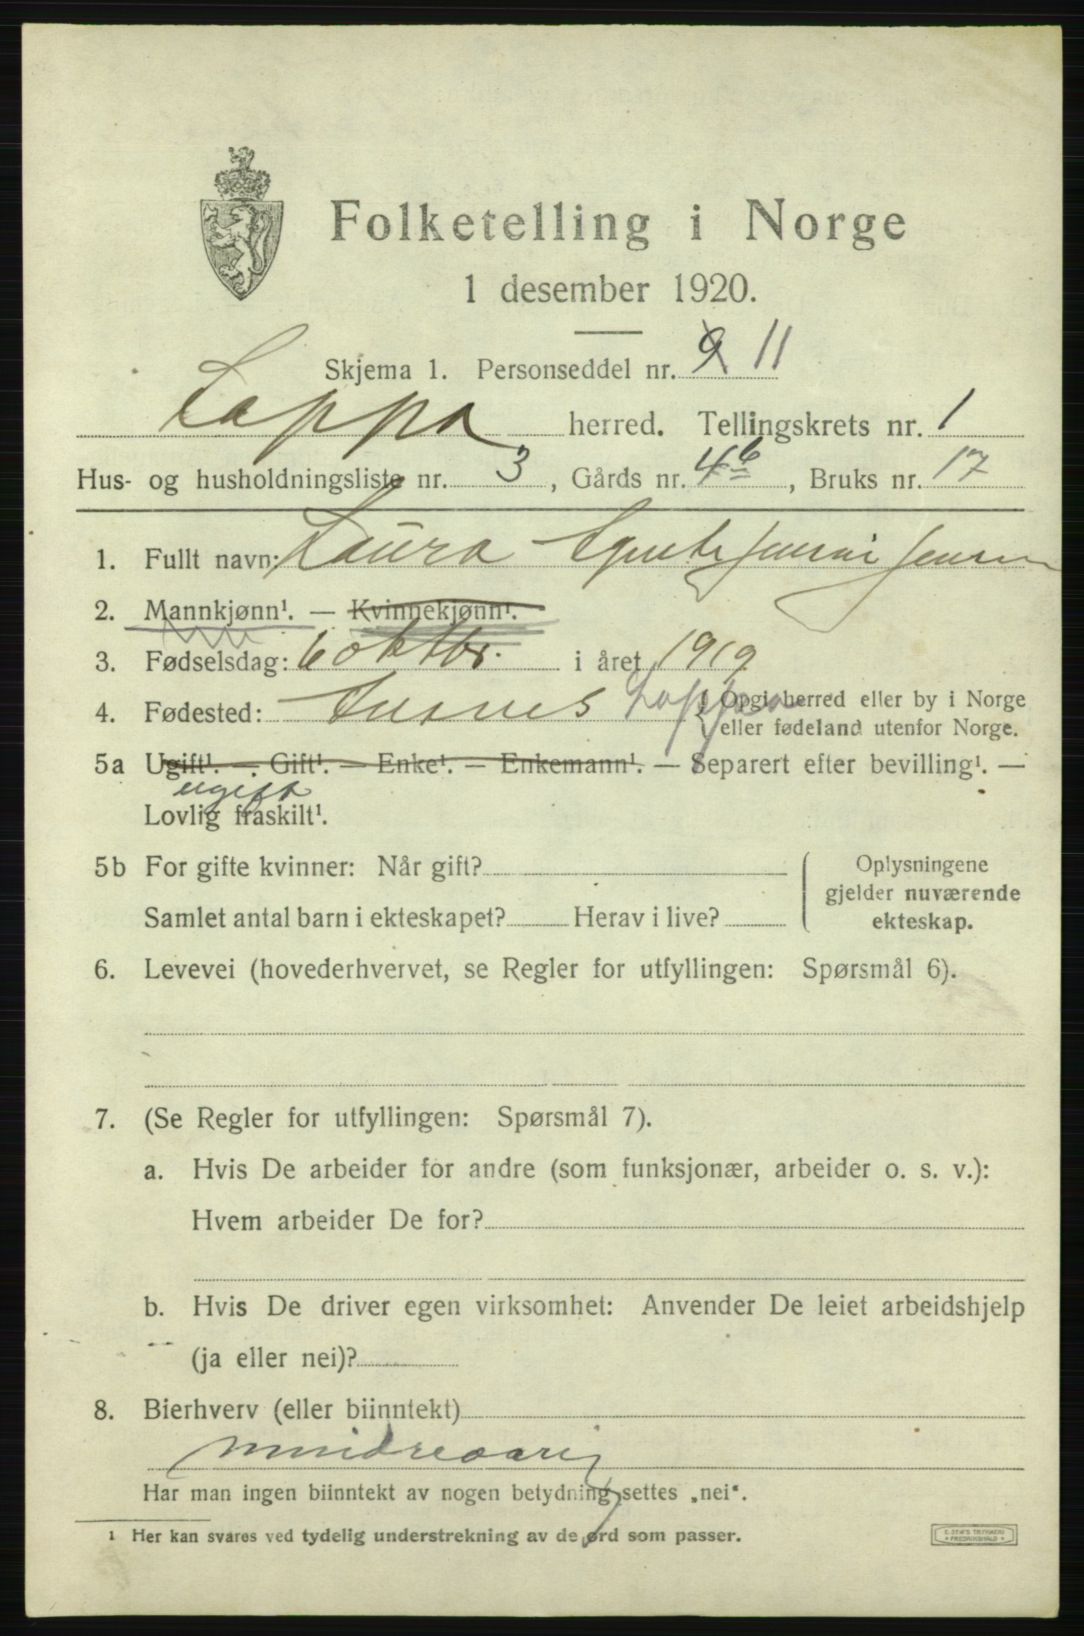 Folketelling i Norge
1 desember 1920.
Skjema 1. Personseddel nr. 9 11
Loppa herred. Tellingskrets nr. 1
Hus- og husholdningsliste nr. 3, Gårds nr. 46, Bruks nr. 17
1. Fullt navn: Laura Jensen
2. Mannkjønn¹. — Kvinnekjønn¹.
3. Fødselsdag: 6 oktbr. i året 1919
4. Fødested: Loppa { Opgi herred eller by i Norge
eller fødeland utenfor Norge.
5a Ugift¹. — Gift¹. — Enke¹. — Enkemann¹. — Separert efter bevilling¹. —
ugift
Lovlig fraskilt¹.
5b For gifte kvinner: Når gift?
Samlet antal barn i ekteskapet? Herav i live?
Oplysningene
gjelder nuværende
ekteskap.
6. Levevei (hovederhvervet, se Regler for utfyllingen: Spørsmål 6).
7. (Se Regler for utfyllingen: Spørsmål 7).
a. Hvis De arbeider for andre (som funksjonær, arbeider o. s. v.):
Hvem arbeider De for?
b. Hvis De driver egen virksomhet: Anvender De leiet arbeidshjelp
(ja eller nei)?
8. Bierhverv (eller biinntekt)
mindreaarig
Har man ingen biinntekt av nogen betydning settes „nei“.
¹ Her kan svares ved tydelig understrekning av de ord som passer.